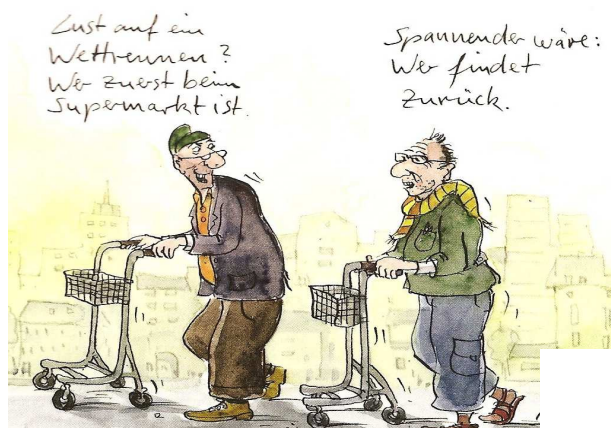 Lust auf ein
Wettrennen?
Wer zuerst beim
Supermarkt ist.
Spannender wäre:
Wer findet
zurück.